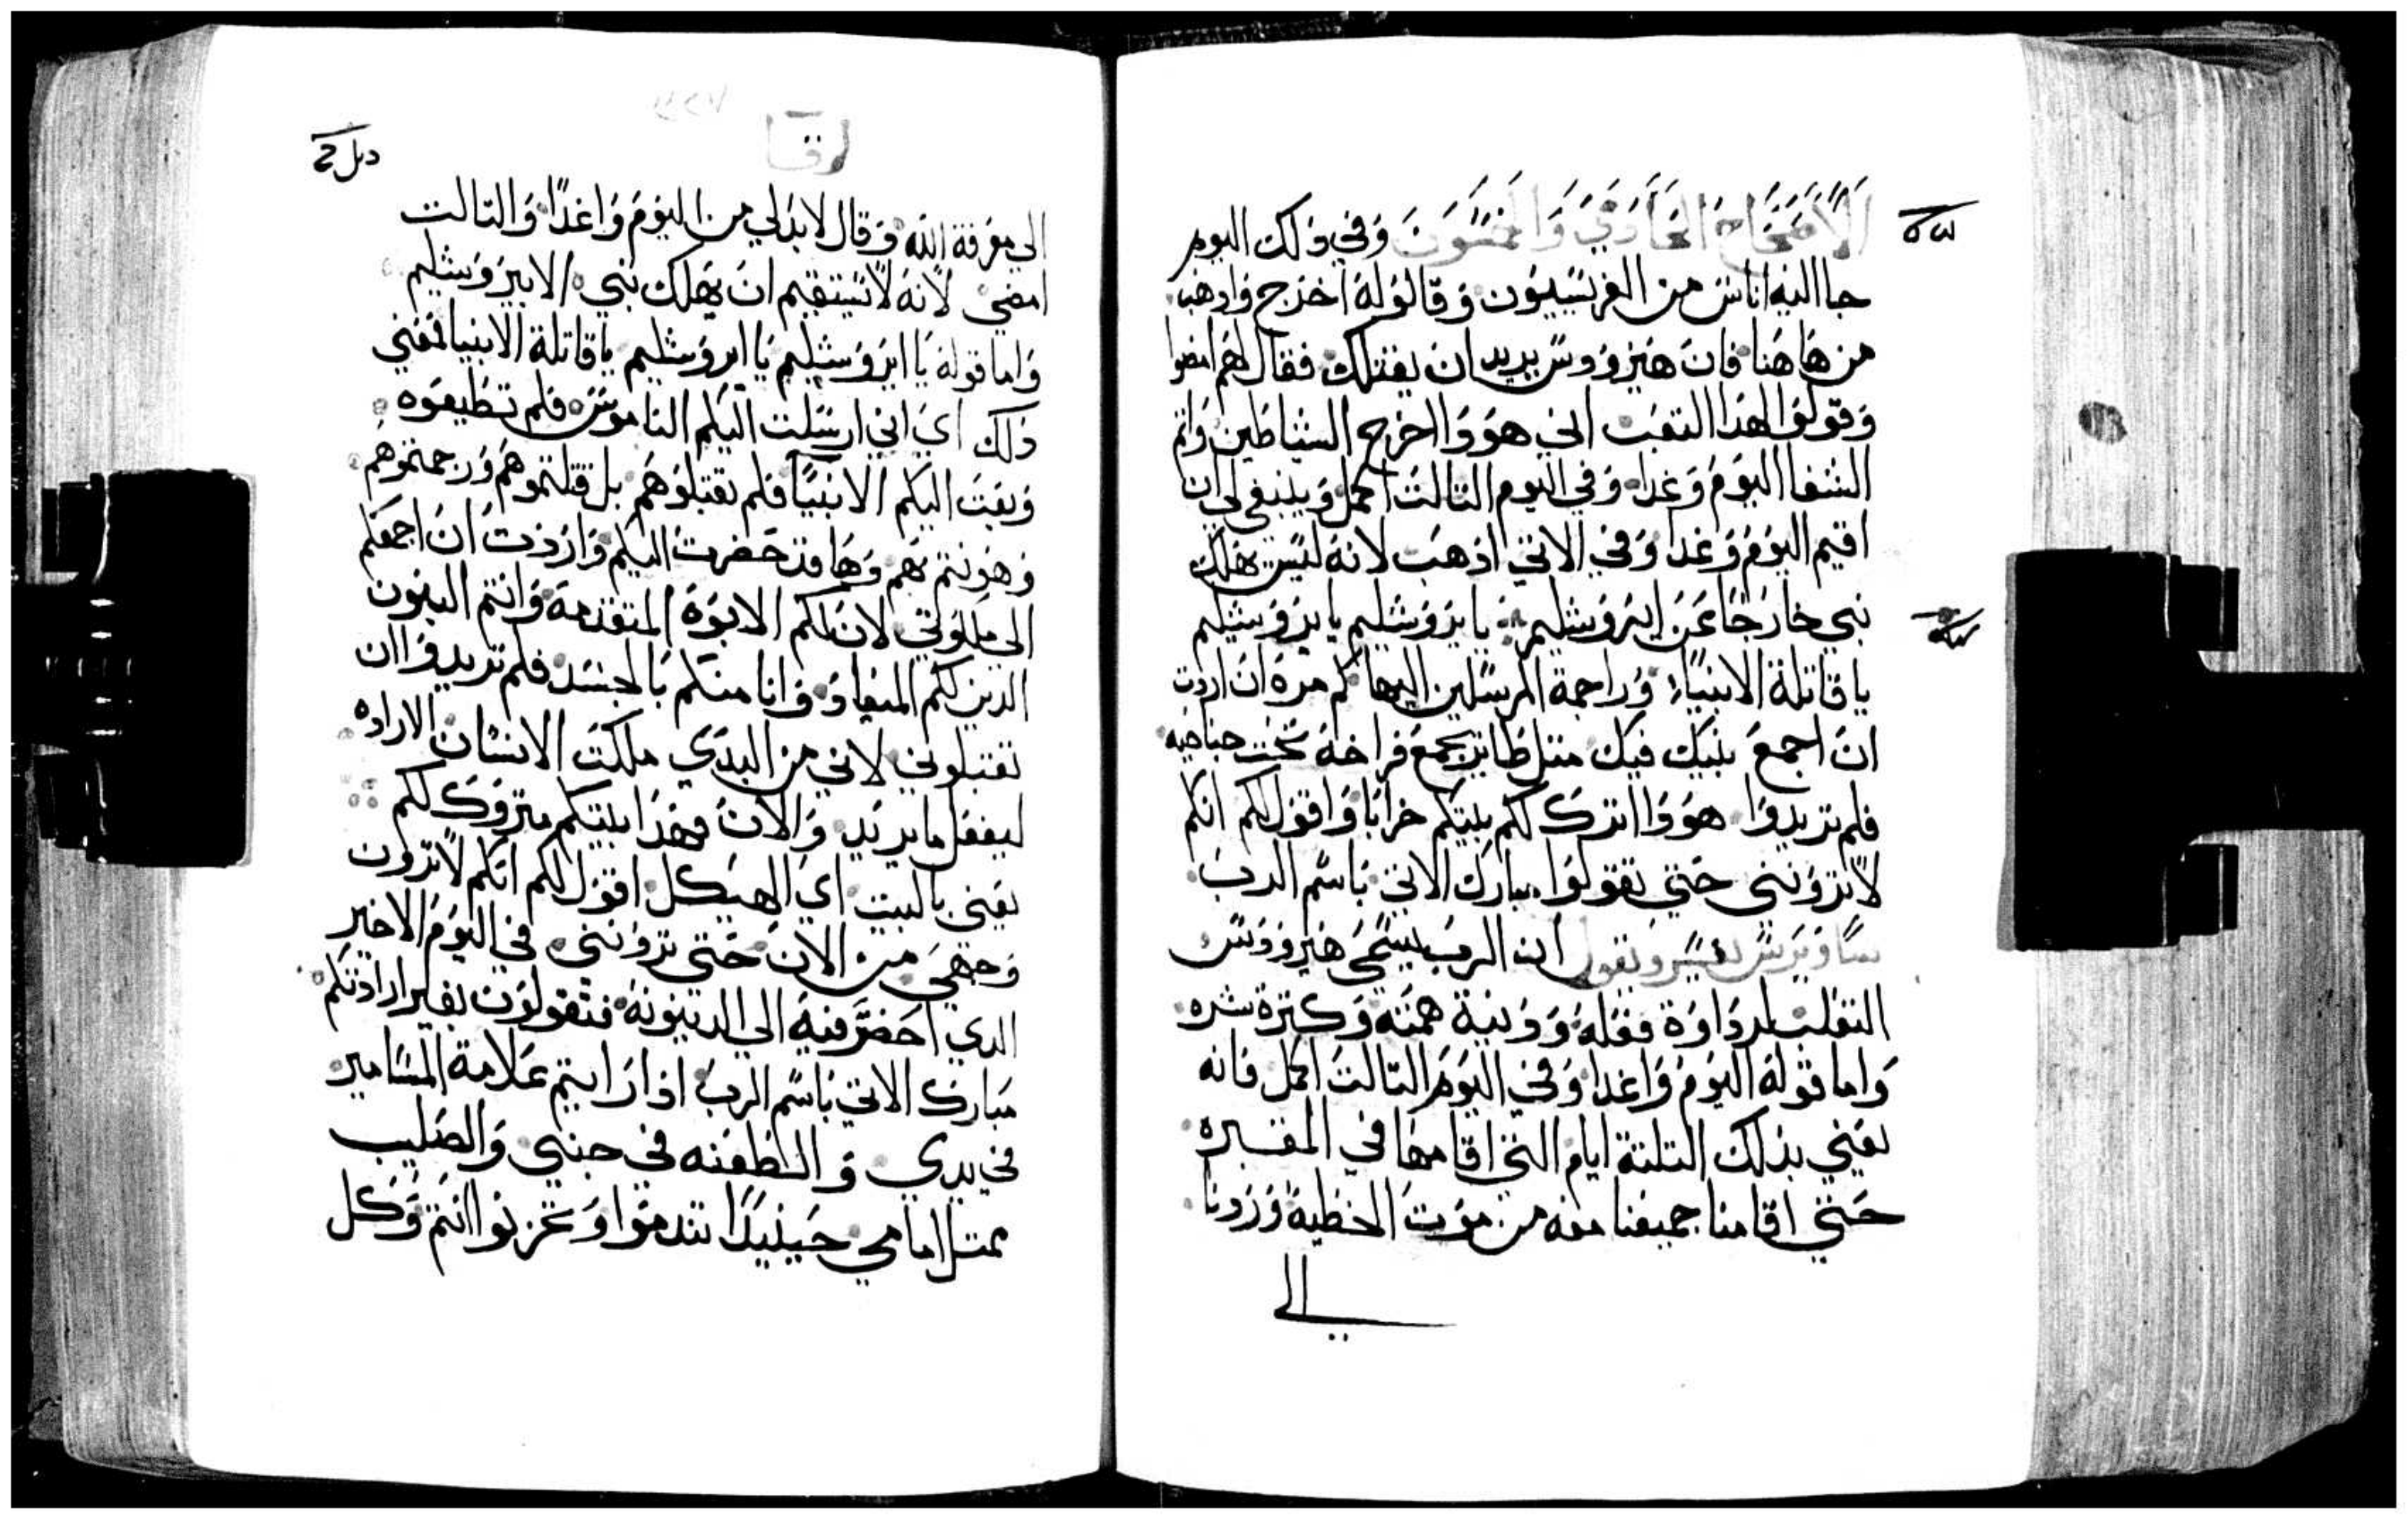 الاصحاح الحادي والخمسون وفي ذلك اليوم
جا اليه اناس من الفريسييون وقالو له اخرج واذهب
من هاهنا فان هيرودس يريد ان يقتلك فقال لهم امضوا
وقولوا لهذا التعلب اني هوذا اخرج الشياطين واتم
الشفا اليوم وغدا وفي اليوم التالت اكمل وينبغي لي ان
اقيم اليوم وغدا وفي الاتي اذهب لانه ليس يهلك
نبي خارجا عن ايروشليم يا يروشليم يا يروشليم
يا قاتلة الانبياء وراجمة المرسلين اليها كم مرة اردت
ان اجمع بنيك فيك متل طاير يجمع فراخه تحت جناحيه
فلم تريدوا هوذا اترك لكم بيتكم خرابا واقول لكم انكم
لا تروننى حتى تقولوا مبارك الاتي باسم الرب
يفسر ويقول ان الرب يسمى هيرودس
التعلب لرداوة فعله ودنية همته وكترة شره
واما قوله اليوم واغدا وفي اليوم التالت اكمل فانه
يعني بذلك التلتة ايام التي اقامها في المقبره
حتي اقامنا جميعنا معه من موت الخطية وردنا
الي
الي معرفة الله وقال لا بد لي من اليوم واغدا والتالت
امضي لانه لا يستقيم ان يهلك نبي الا بيروشليم
واما قوله يا ايروشليم يا ايروشليم يا قاتلة الانبيا فمعني
ذلك اي اني ارسلت اليكم الناموس فلم تطيعوه
وبعت اليكم الانبيا فلم تقبلوهم بل قتلتموهم ورجمتموهم
وهونتم بهم وها قد حضرت اليكم واردت ان اجمعكم
الي ملكوتي لان لكم الابوة المتقدمة وانتم البنون
الدين لكم الميعاد وانا منكم بالجسد فلم تريدوا ان
تقبلوني لاني من البدي ملكت الانسان الاراده
ليفعل ما يريد والان فهذا بيتكم متروك لكم
يعني بالبيت اي الهيكل اقول لكم انكم لا ترون
وجهي من الان حتى تروننى في اليوم الاخير
الدي احضر فيه الي الدينونة فتقولون بغير ارادتكم
مبارك الاتي باسم الرب اذا رايتم علامة المسامير
في يدي والطعنه في جنبي والصليب
يمتل امامي حينيدا تندموا وتحزنوا انتم وكل